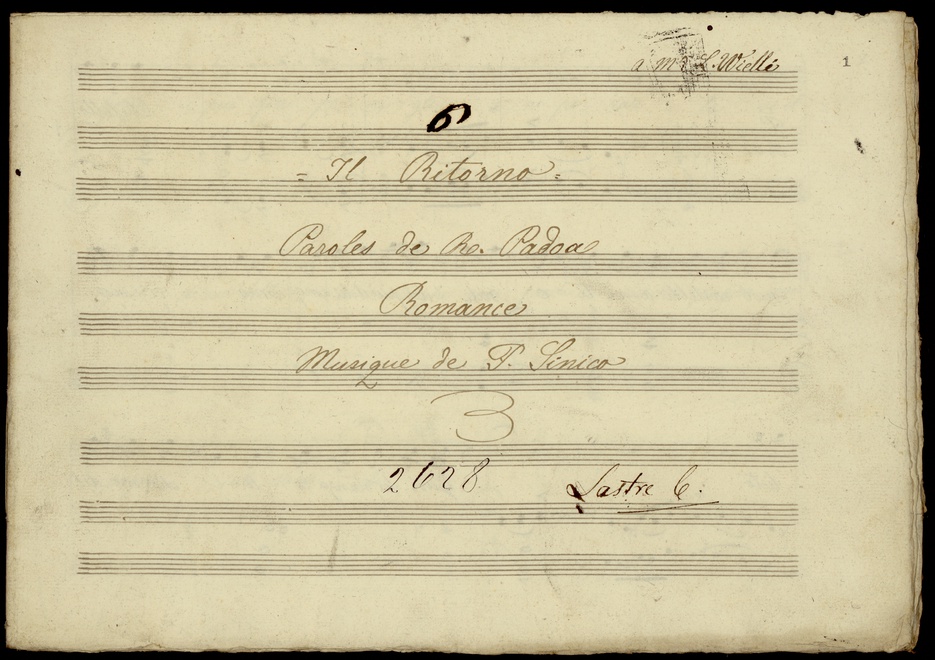 1
6
= Il Ritorno =
Paroles de R. Padoa
Romance
Musique de F. Sinico
2628
Lastre 6.